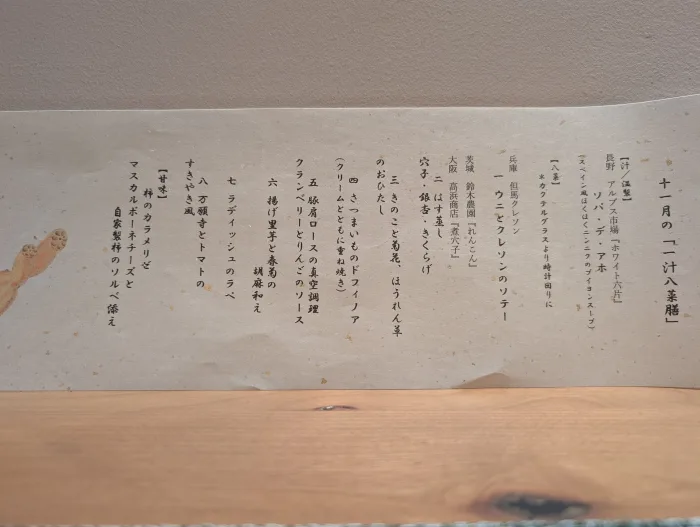 十一月の「一汁八菜膳」
【汁／温製】
長野 アルプス市場『ホワイト六片』
ソパ・デ・アホ
(スペイン風ほくほくニンニクのブイヨンスープ)
【八菜】
※カクテルグラスより時計回りに
兵庫 但馬クレソン
一 ウニとクレソンのソテー
茨城 鈴木農園『れんこん』
大阪 高浜商店『煮穴子』
二 はす蒸し
穴子・銀杏・きくらげ
三 きのこと菊花、ほうれん草
のおひたし
四 さつまいものドフィノア
(クリームとともに重ね焼き)
五 豚肩ロースの真空調理
クランベリーとりんごのソース
六 揚げ里芋と春菊の
胡麻和え
七 ラディッシュのラペ
八 万願寺とトマトの
すきやき風
【甘味】
柿のカラメリゼ
マスカルポーネチーズと
自家製柿のソルベ添え